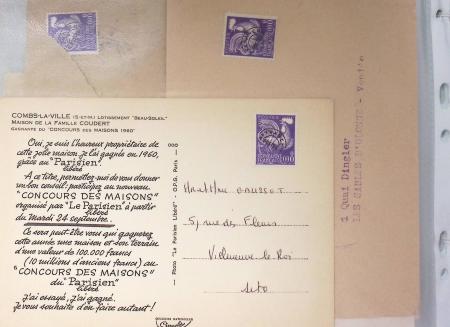 COMBS-LA-VILLE (S-ET-M.) LOTISSEMENT "BEAU-SOLEIL"
MAISON DE LA FAMILLE COUDERT
GAGNANTE DU "CONCOURS DES MAISONS 1960"
Oui, je suis l'heureux propriétaire de
cette jolie maison. Je l'ai gagnée en 1960,
grâce au "Parisien
libéré"
A ce titre, permettez-moi de vous donner
un bon conseil: participez au nouveau
"CONCOURS DES MAISONS"
organisé par "Le Parisien libéré" à partir
du Mardi 24 septembre.
Ce sera peut-être vous qui gagnerez
cette année une maison et son terrain
d'une valeur de 100.000 francs
(10 millions d'anciens francs) au
"CONCOURS DES MAISONS"
du "Parisien
libéré"
J'ai essayé, j'ai gagné.
Je vous souhaite d'en faire autant!
Coudert
Photo "Le Parisien Libéré" O.P.G. Paris — 000
51 rue des Fleurs
Villeneuve-le-Roi
1 Quai Dingler
LES SABLES D'OLONNE - Vendée